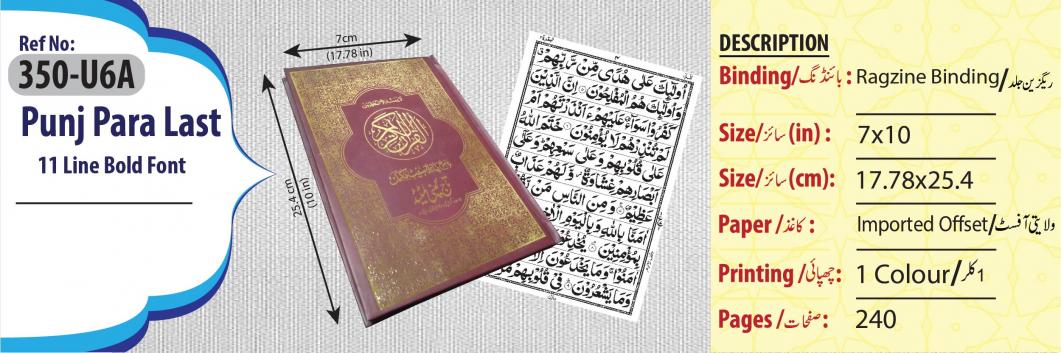 Ref No:
350-U6A
Punj Para Last
11 Line Bold Font
7cm
(17.78 in)
25.4 cm
(10 in)
القرآن الکریم
أُولَٰئِكَ عَلَىٰ هُدًى مِّن رَّبِّهِمْ
وَأُولَٰئِكَ هُمُ الْمُفْلِحُونَ إِنَّ الَّذِينَ
كَفَرُوا سَوَاءٌ عَلَيْهِمْ أَأَنذَرْتَهُمْ أَمْ
لَمْ تُنذِرْهُمْ لَا يُؤْمِنُونَ خَتَمَ اللَّهُ
عَلَىٰ قُلُوبِهِمْ وَعَلَىٰ سَمْعِهِمْ وَعَلَىٰ
أَبْصَارِهِمْ غِشَاوَةٌ وَلَهُمْ عَذَابٌ
عَظِيمٌ وَمِنَ النَّاسِ مَن
آمَنَّا بِاللَّهِ وَبِالْيَوْمِ
بِمُؤْمِنِينَ يُخَادِعُونَ
آمَنُوا وَمَا يَخْدَعُونَ
وَمَا يَشْعُرُونَ فِي قُلُوبِهِم
DESCRIPTION
Binding/بائنڈنگ : Ragzine Binding/ریگزین جلد
Size/سائز (in) : 7x10
Size/سائز (cm): 17.78x25.4
Paper /کاغذ : Imported Offset/ولایتی آفسٹ
Printing /چھپائی: 1 Colour/1 کلر
Pages /صفحات: 240